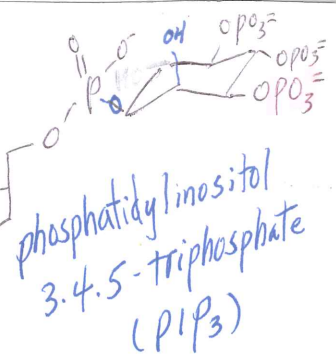 OH OPO₃⁼
O O⁻ OPO₃⁼
P O OPO₃⁼
O
phosphatidylinositol
3.4.5-triphosphate
(PIP₃)